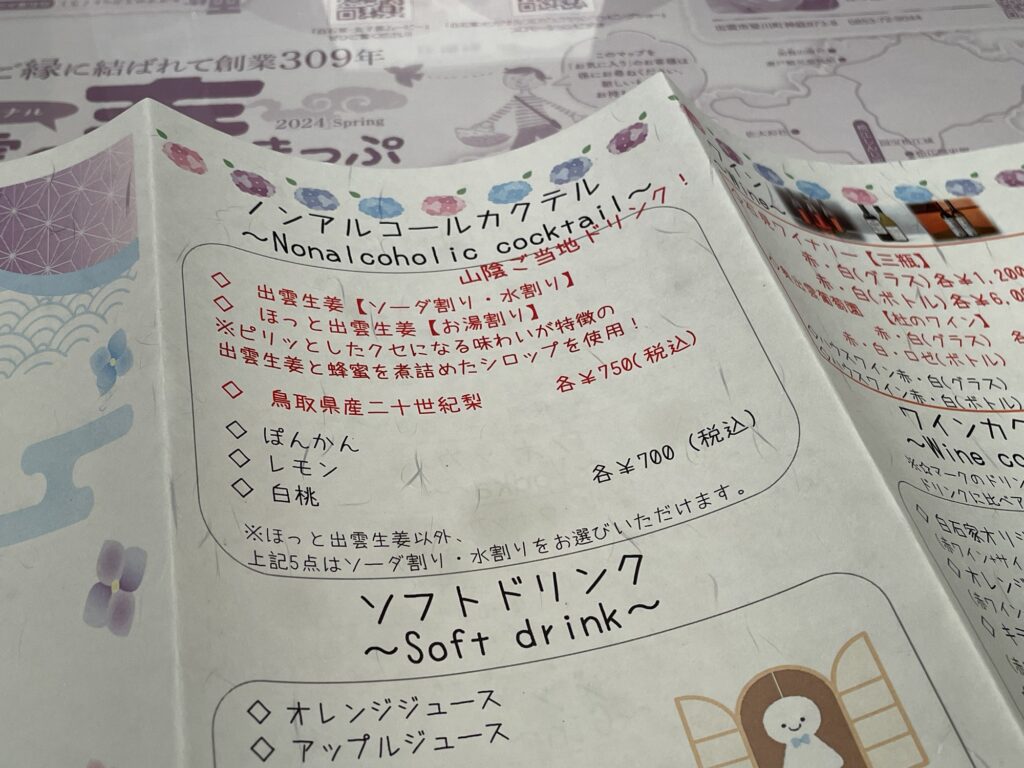 ご縁に結ばれて創業309年
2024 Spring
このマップを
ノンアルコールカクテル
～Nonalcoholic cocktail～
山陰ご当地ドリンク！
◇ 出雲生姜【ソーダ割り・水割り】
◇ ほっと出雲生姜【お湯割り】
※ピリッとしたクセになる味わいが特徴の
出雲生姜と蜂蜜を煮詰めたシロップを使用！
◇ 鳥取県産二十世紀梨
各￥750(税込)
◇ ぽんかん
◇ レモン
◇ 白桃
各￥700 (税込)
※ほっと出雲生姜以外、
上記5点はソーダ割り・水割りをお選びいただけます。
ソフトドリンク
～Soft drink～
◇ オレンジジュース
◇ アップルジュース
ワイナリー【三瓶】
赤・白(グラス)各￥1,200
赤・白(ボトル)各￥6,0
【杜のワイン】
赤・白(グラス)
赤・白・ロゼ(ボトル)
ハウスワイン赤・白(グラス)
ハウスワイン赤・白(ボトル)
ワインカク
～Wine co
※☆マークのドリン
ドリンクに比べア
◇ 白石家オリジ
◇ オレンジ